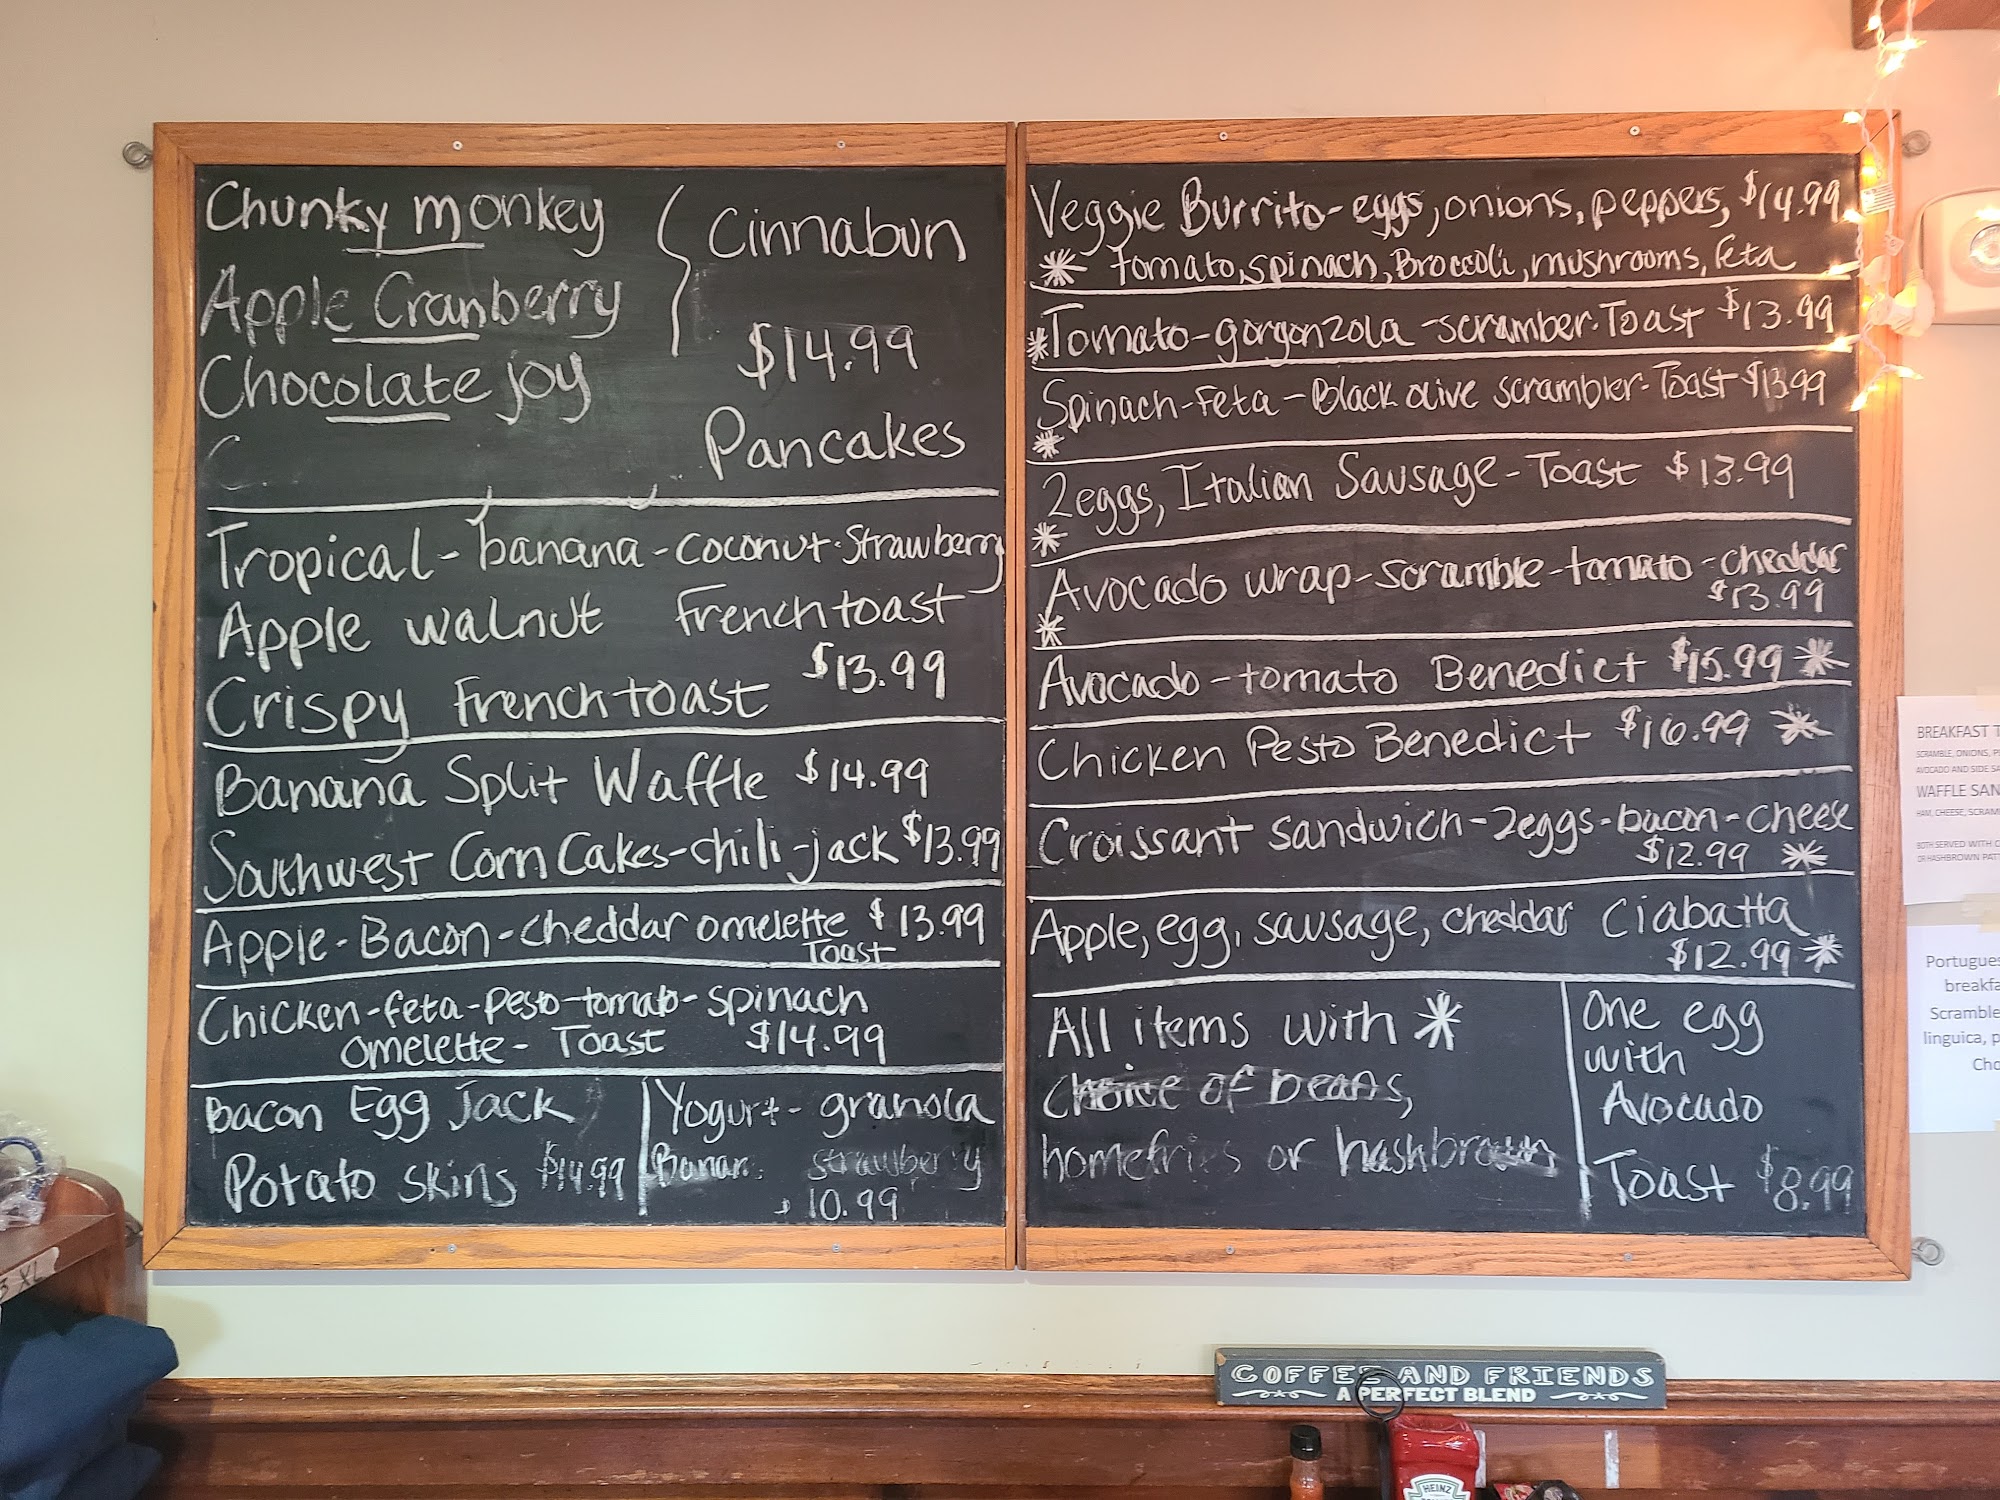 Chunky monkey
Apple Cranberry
Chocolate joy
C
Cinnabun
$14.99
Pancakes
Tropical - banana - coconut - Strawberry
Apple walnut Frenchtoast
Crispy Frenchtoast $13.99
Banana Split Waffle $14.99
Southwest Corn Cakes - chili - jack $13.99
Apple - Bacon - cheddar omelette $13.99
Toast
Chicken - feta - pesto - tomato - spinach
omelette - Toast $14.99
Bacon Egg Jack
Potato skins $14.99
Yogurt - granola
Banan strawberry
10.99
Veggie Burrito - eggs, onions, peppers, $14.99
* tomato, spinach, Broccoli, mushrooms, feta
*Tomato - gorgonzola - scramber - Toast $13.99
Spinach - Feta - Black olive scrambler - Toast $13.99
*
2 eggs, Italian Sausage - Toast $13.99
*
Avocado wrap - scramble - tomato - cheddar
$13.99
*
Avocado - tomato Benedict $15.99 *
Chicken Pesto Benedict $16.99 *
Croissant sandwich - 2eggs - bacon - cheese
$12.99 *
Apple, egg, sausage, cheddar Ciabatta
$12.99 *
All items with *
Choice of beans,
homefries or hashbrown
One egg
with
Avocado
Toast $8.99
BREAKFAST T
SCRAMBLE, ONIONS, P
AVOCADO AND SIDE SA
WAFFLE SAN
HAM, CHEESE, SCRAM
BOTH SERVED WITH C
OR HASHBROWN PATT
Portugues
breakfa
Scramble
linguica, p
Cho
3 XL
COFFEE AND FRIENDS
A PERFECT BLEND
HEINZ